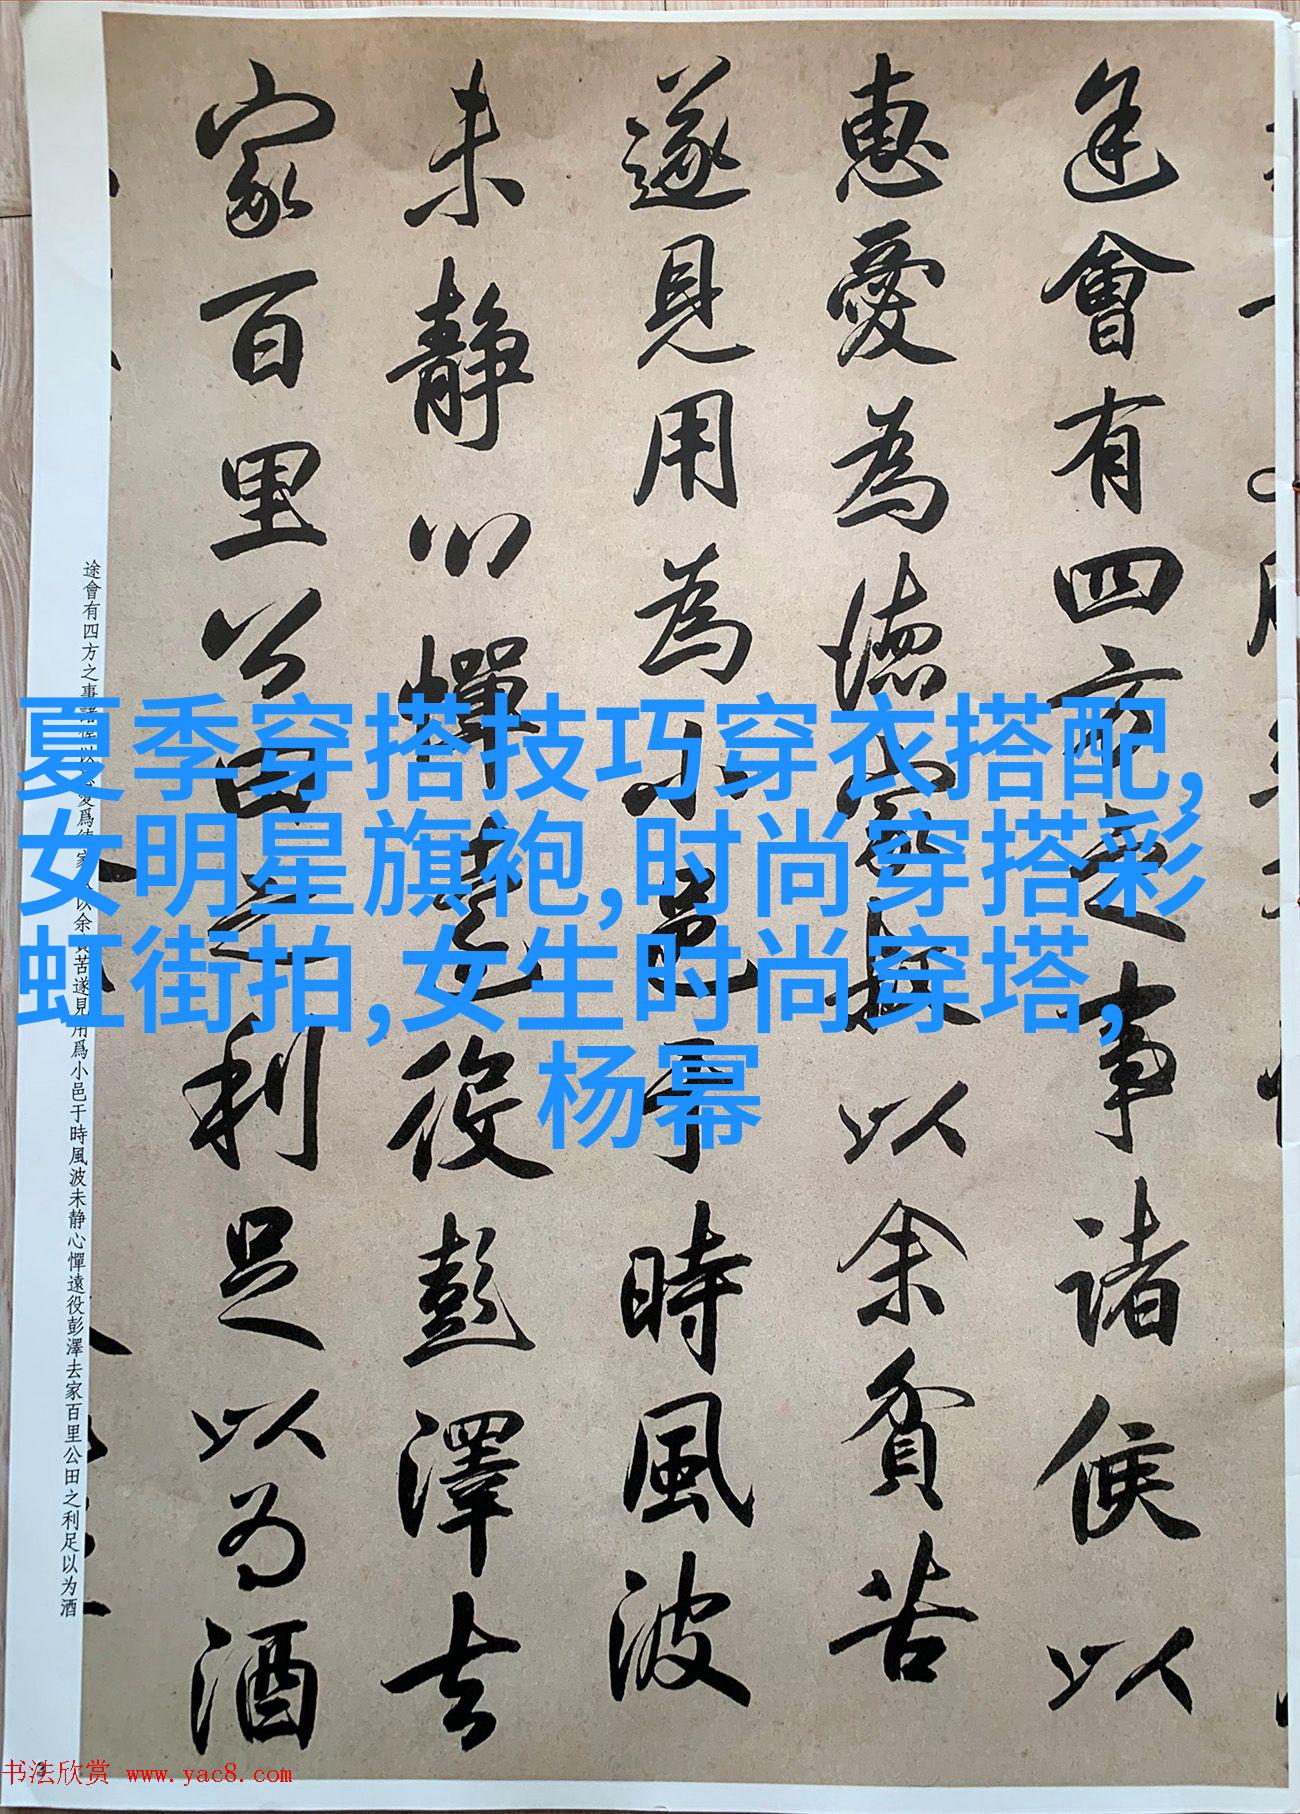 途會有四方之事諸侯以
惠愛為德家叔以余貧苦
遂見用為小邑于時風波
未静心憚遠役彭澤去
家百里公田之利足以為酒
夏季穿搭技巧穿衣搭配,
女明星旗袍,时尚穿搭彩
虹街拍,女生时尚穿塔,
杨幂
途會有四方之事諸侯以 愛爲德家 以余貧苦遂見用爲小邑于時風波未静心憚遠役彭澤去家百里公田之利足以为酒
书法欣赏 www.yac8.com